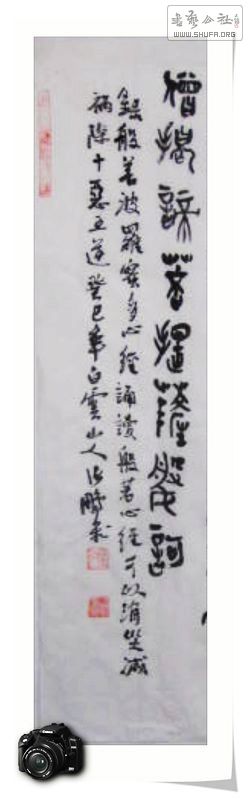 书艺公社
WWW.SHUFA.ORG
僧揭諦菩提薩婆訶
錄般若波羅蜜多心經誦讀般若心經可以消災滅
禍除十惡五逆癸巳年白雲山人鵬